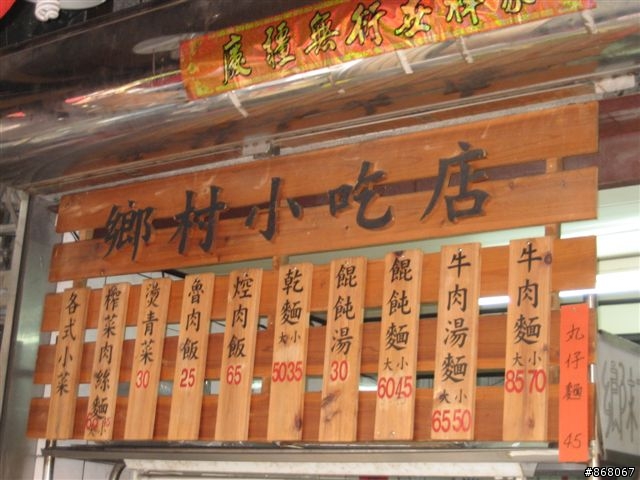 慶疆無衍世祥家
鄉村小吃店
牛肉麵
大小
85 70
牛肉湯麵
大小
65 50
餛飩麵
大小
60 45
餛飩湯
30
乾麵
大小
50 35
焢肉飯
65
魯肉飯
25
燙青菜
30
榨菜肉絲麵
大小
各式小菜
丸仔麵
45
鄉村
#868067